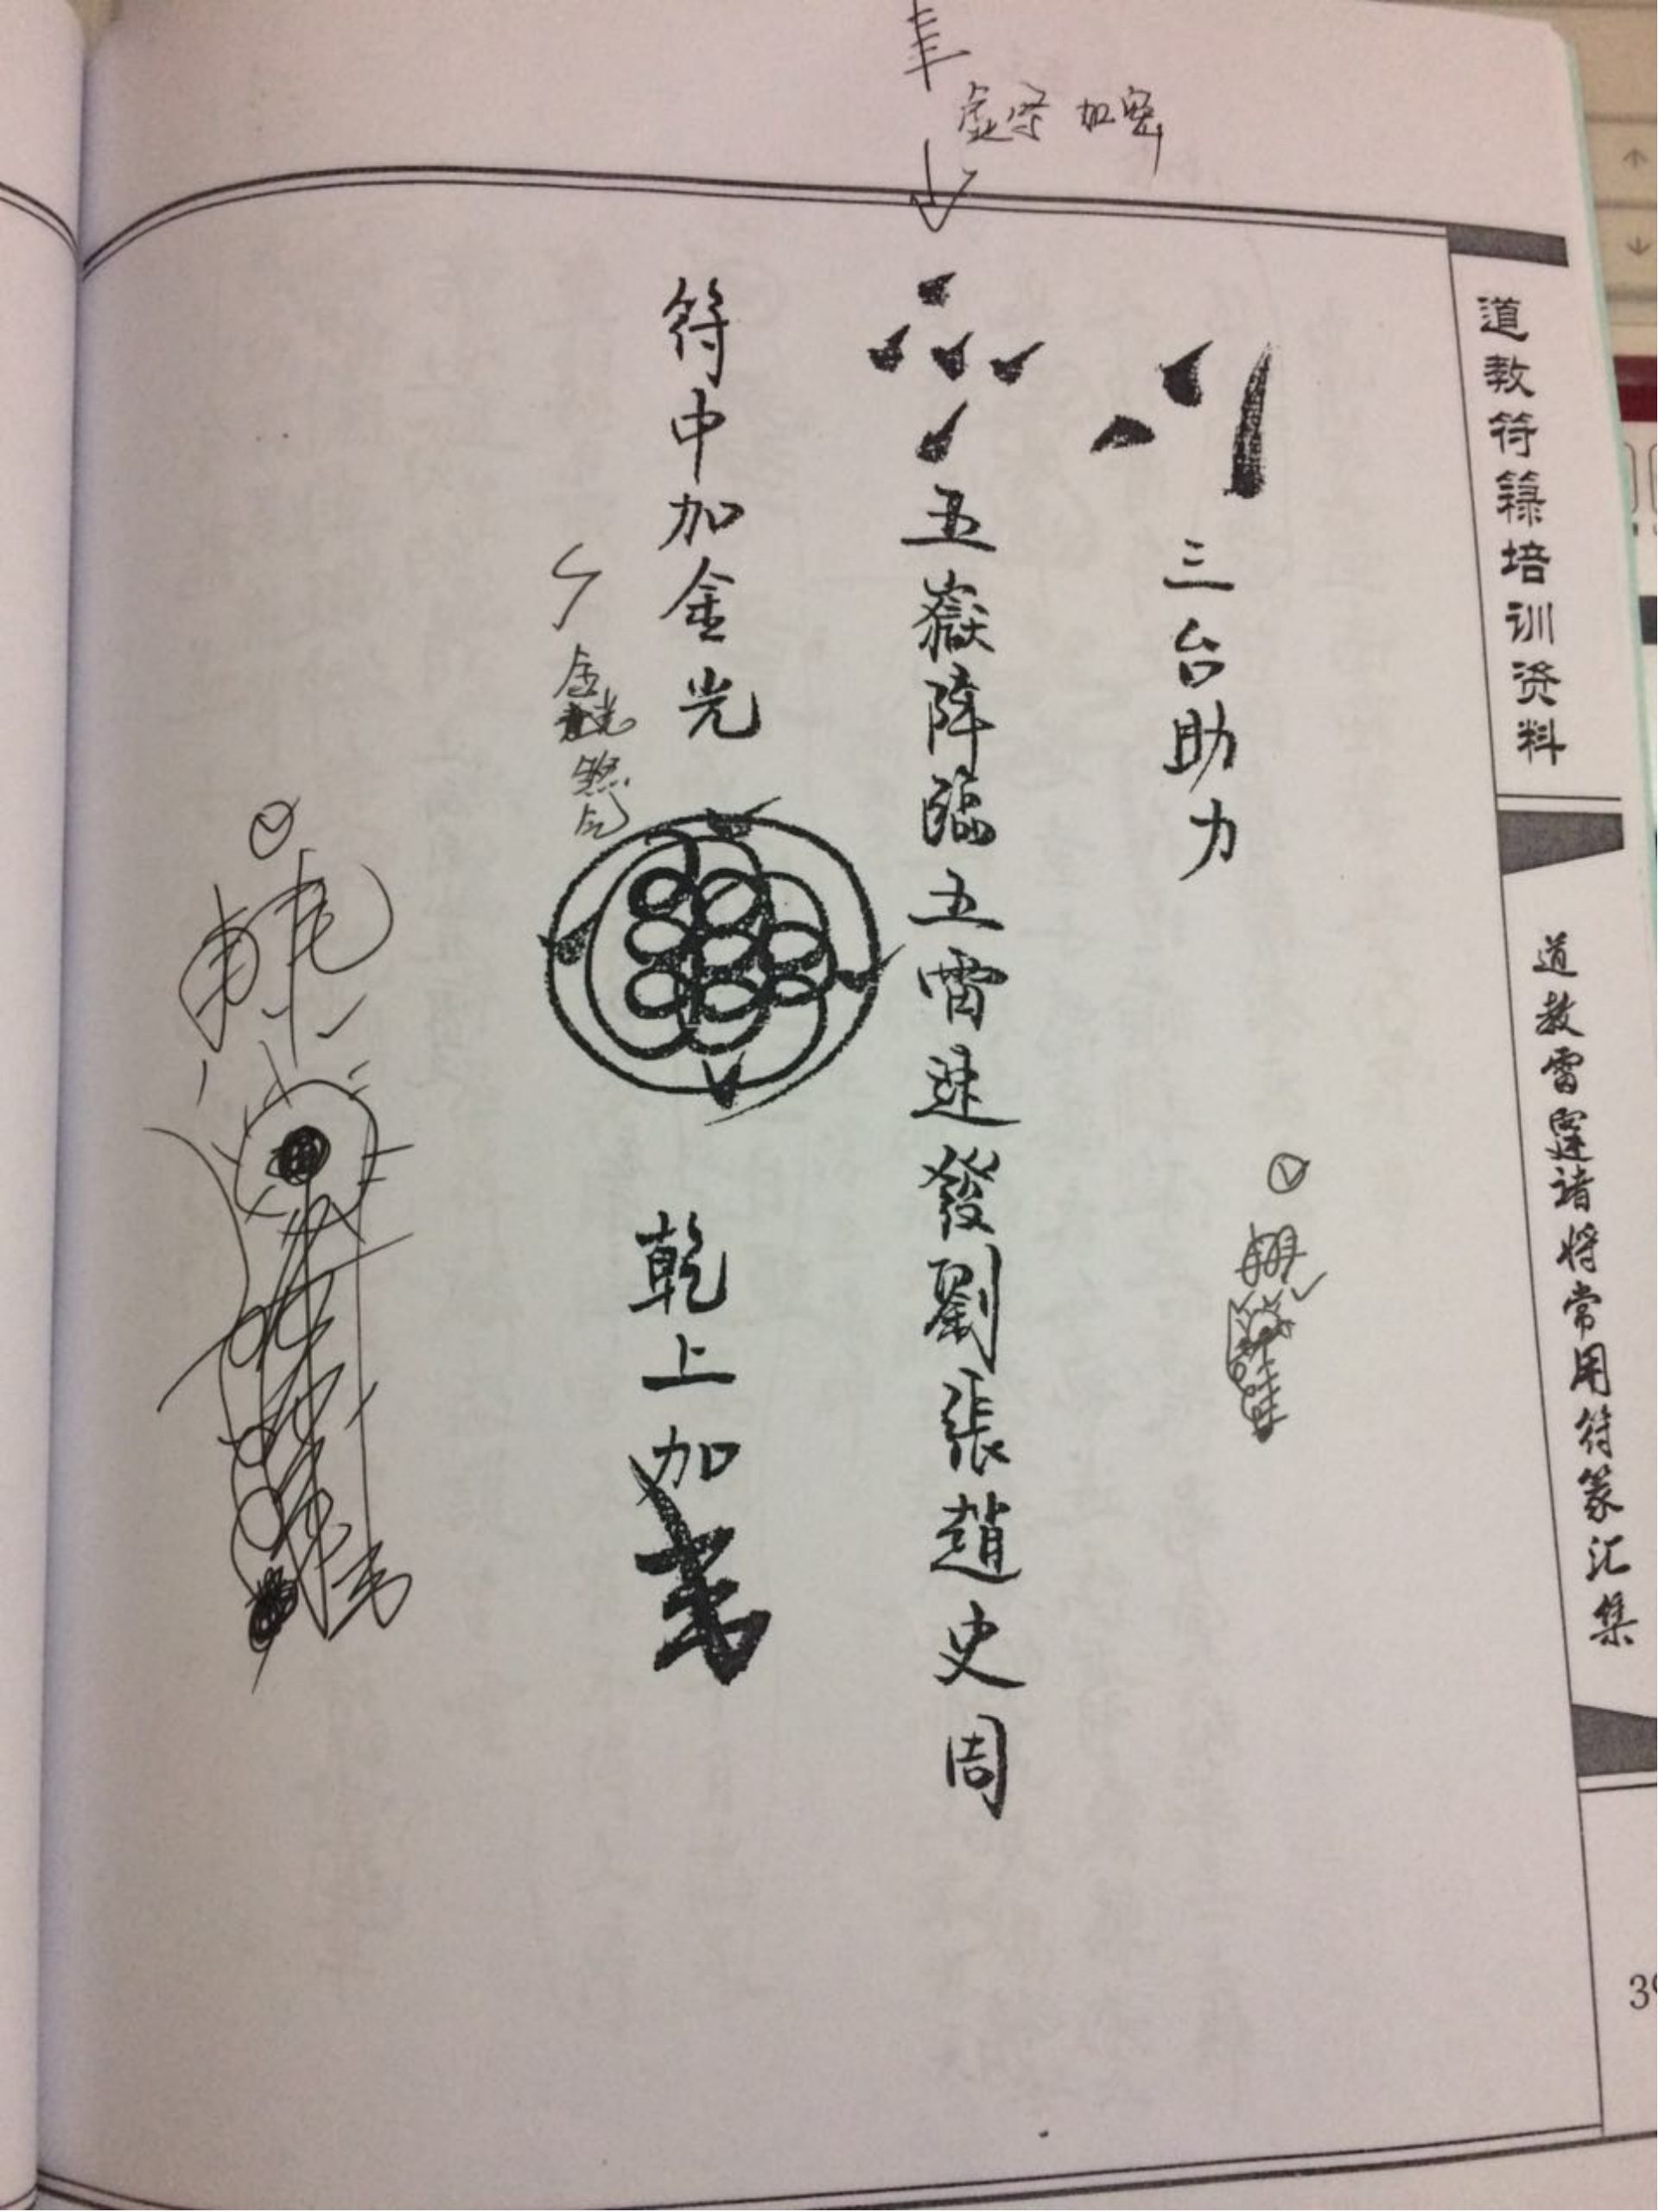 道教符籙培训资料
道教雷霆诸将常用符篆汇集
三台助力
五嶽阵臨五雷速發劉張趙史周
符中加金光
乾上加
加密
金光